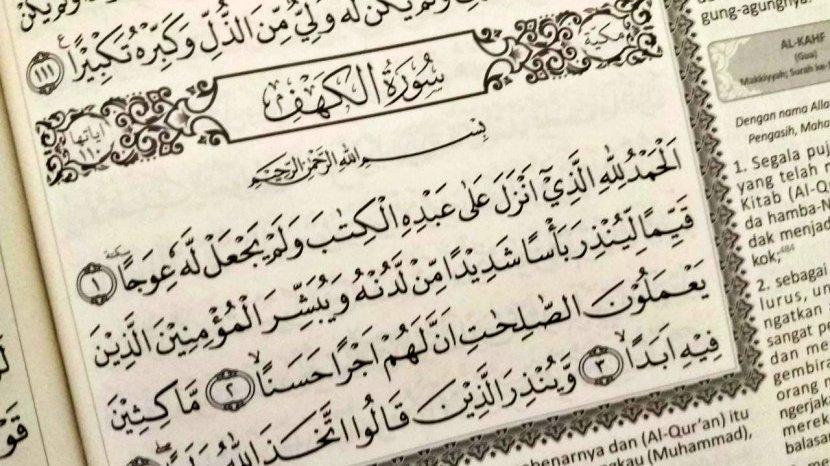 وَلِيٌّ مِّنَ الذُّلِّ وَكَبِّرْهُ تَكْبِيْرًا ۝١١١
مكيّة
سُوْرَةُ الْكَهْفِ
اٰياتها ١١٠
بِسْمِ اللهِ الرَّحْمٰنِ الرَّحِيْمِ
اَلْحَمْدُ لِلّٰهِ الَّذِيْٓ اَنْزَلَ عَلٰى عَبْدِهِ الْكِتٰبَ وَلَمْ يَجْعَلْ لَّهٗ عِوَجًا سكتة ۝١
قَيِّمًا لِّيُنْذِرَ بَأْسًا شَدِيْدًا مِّنْ لَّدُنْهُ وَيُبَشِّرَ الْمُؤْمِنِيْنَ الَّذِيْنَ
يَعْمَلُوْنَ الصّٰلِحٰتِ اَنَّ لَهُمْ اَجْرًا حَسَنًاۙ ۝٢ مَّاكِثِيْنَ
فِيْهِ اَبَدًاۙ ۝٣ وَّيُنْذِرَ الَّذِيْنَ قَالُوا اتَّخَذَ اللّٰهُ
gung-agungnya.
AL-KAHF
(Gua)
Makkiyyah; Surah ke-
Dengan nama Alla
Pengasih, Maha
1. Segala puj
yang telah
Kitab (Al-Q
da hamba-N
dak menjad
kok;484
2. sebagai
lurus, un
ngatkan
sangat p
dan me
gembira
orang
ngerjak
merek
balasa
benarnya dan (Al-Qur'an) itu
gkau (Muhammad),